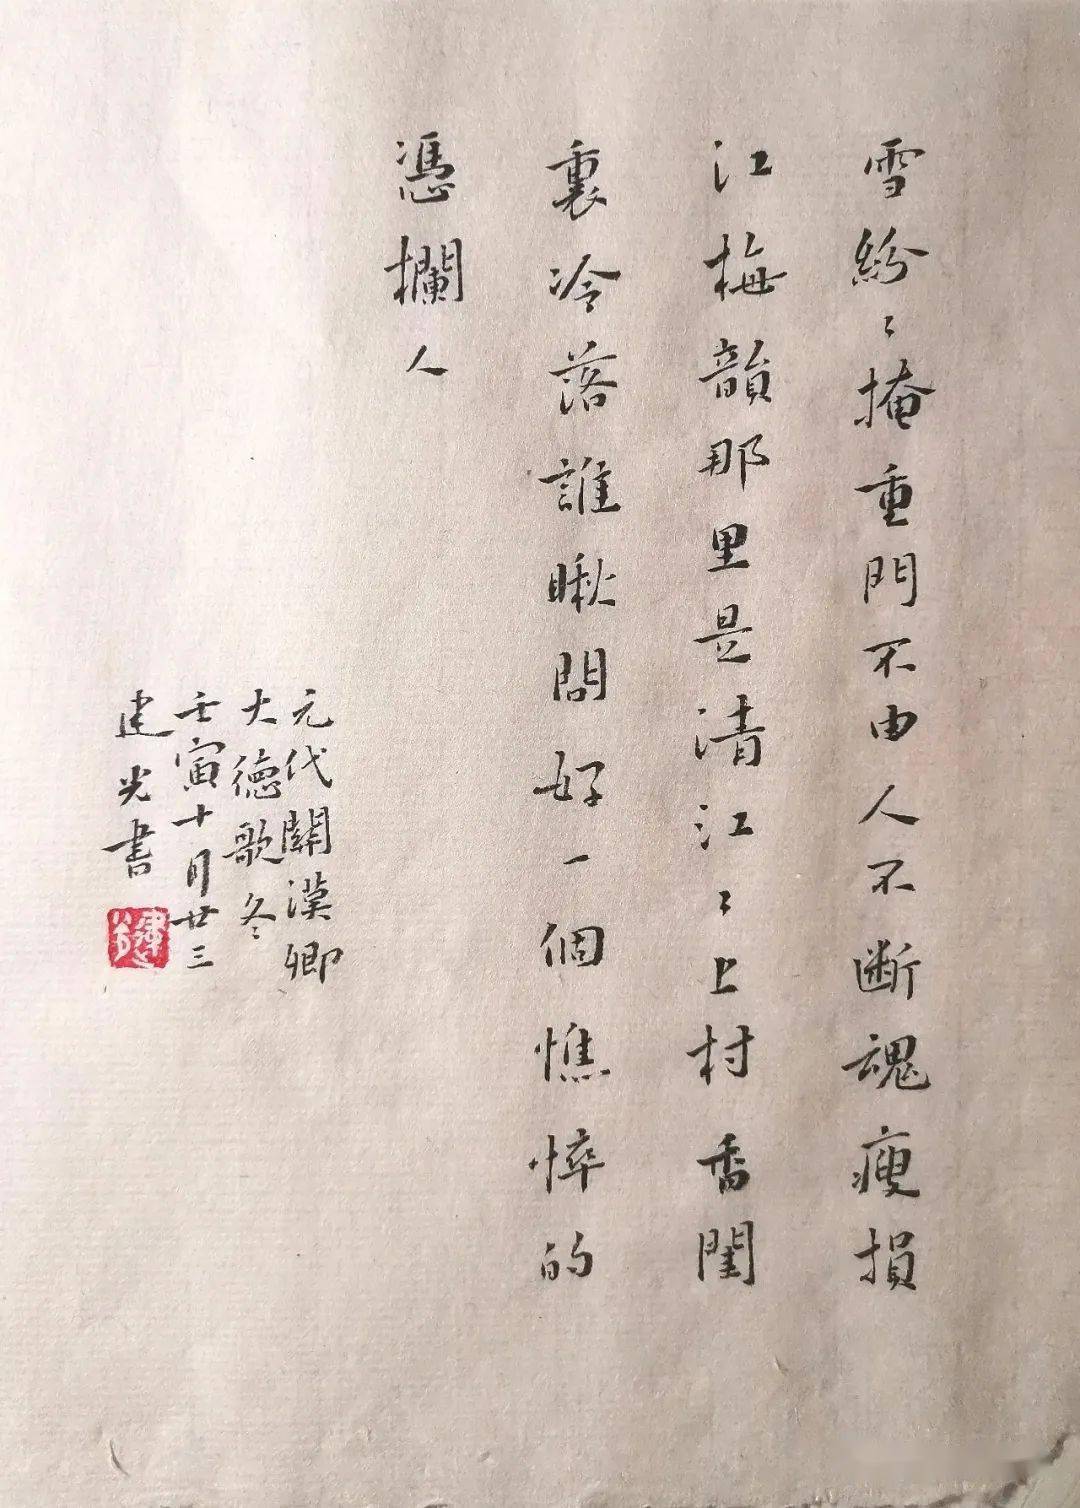 雪紛〻掩重門不由人不断魂瘦損
江梅韻那里是清江〻上村香閨
裏冷落誰瞅問好一個憔悴的
憑欄人
元代關漢卿
大德歌冬
壬寅十月廿三
建光書